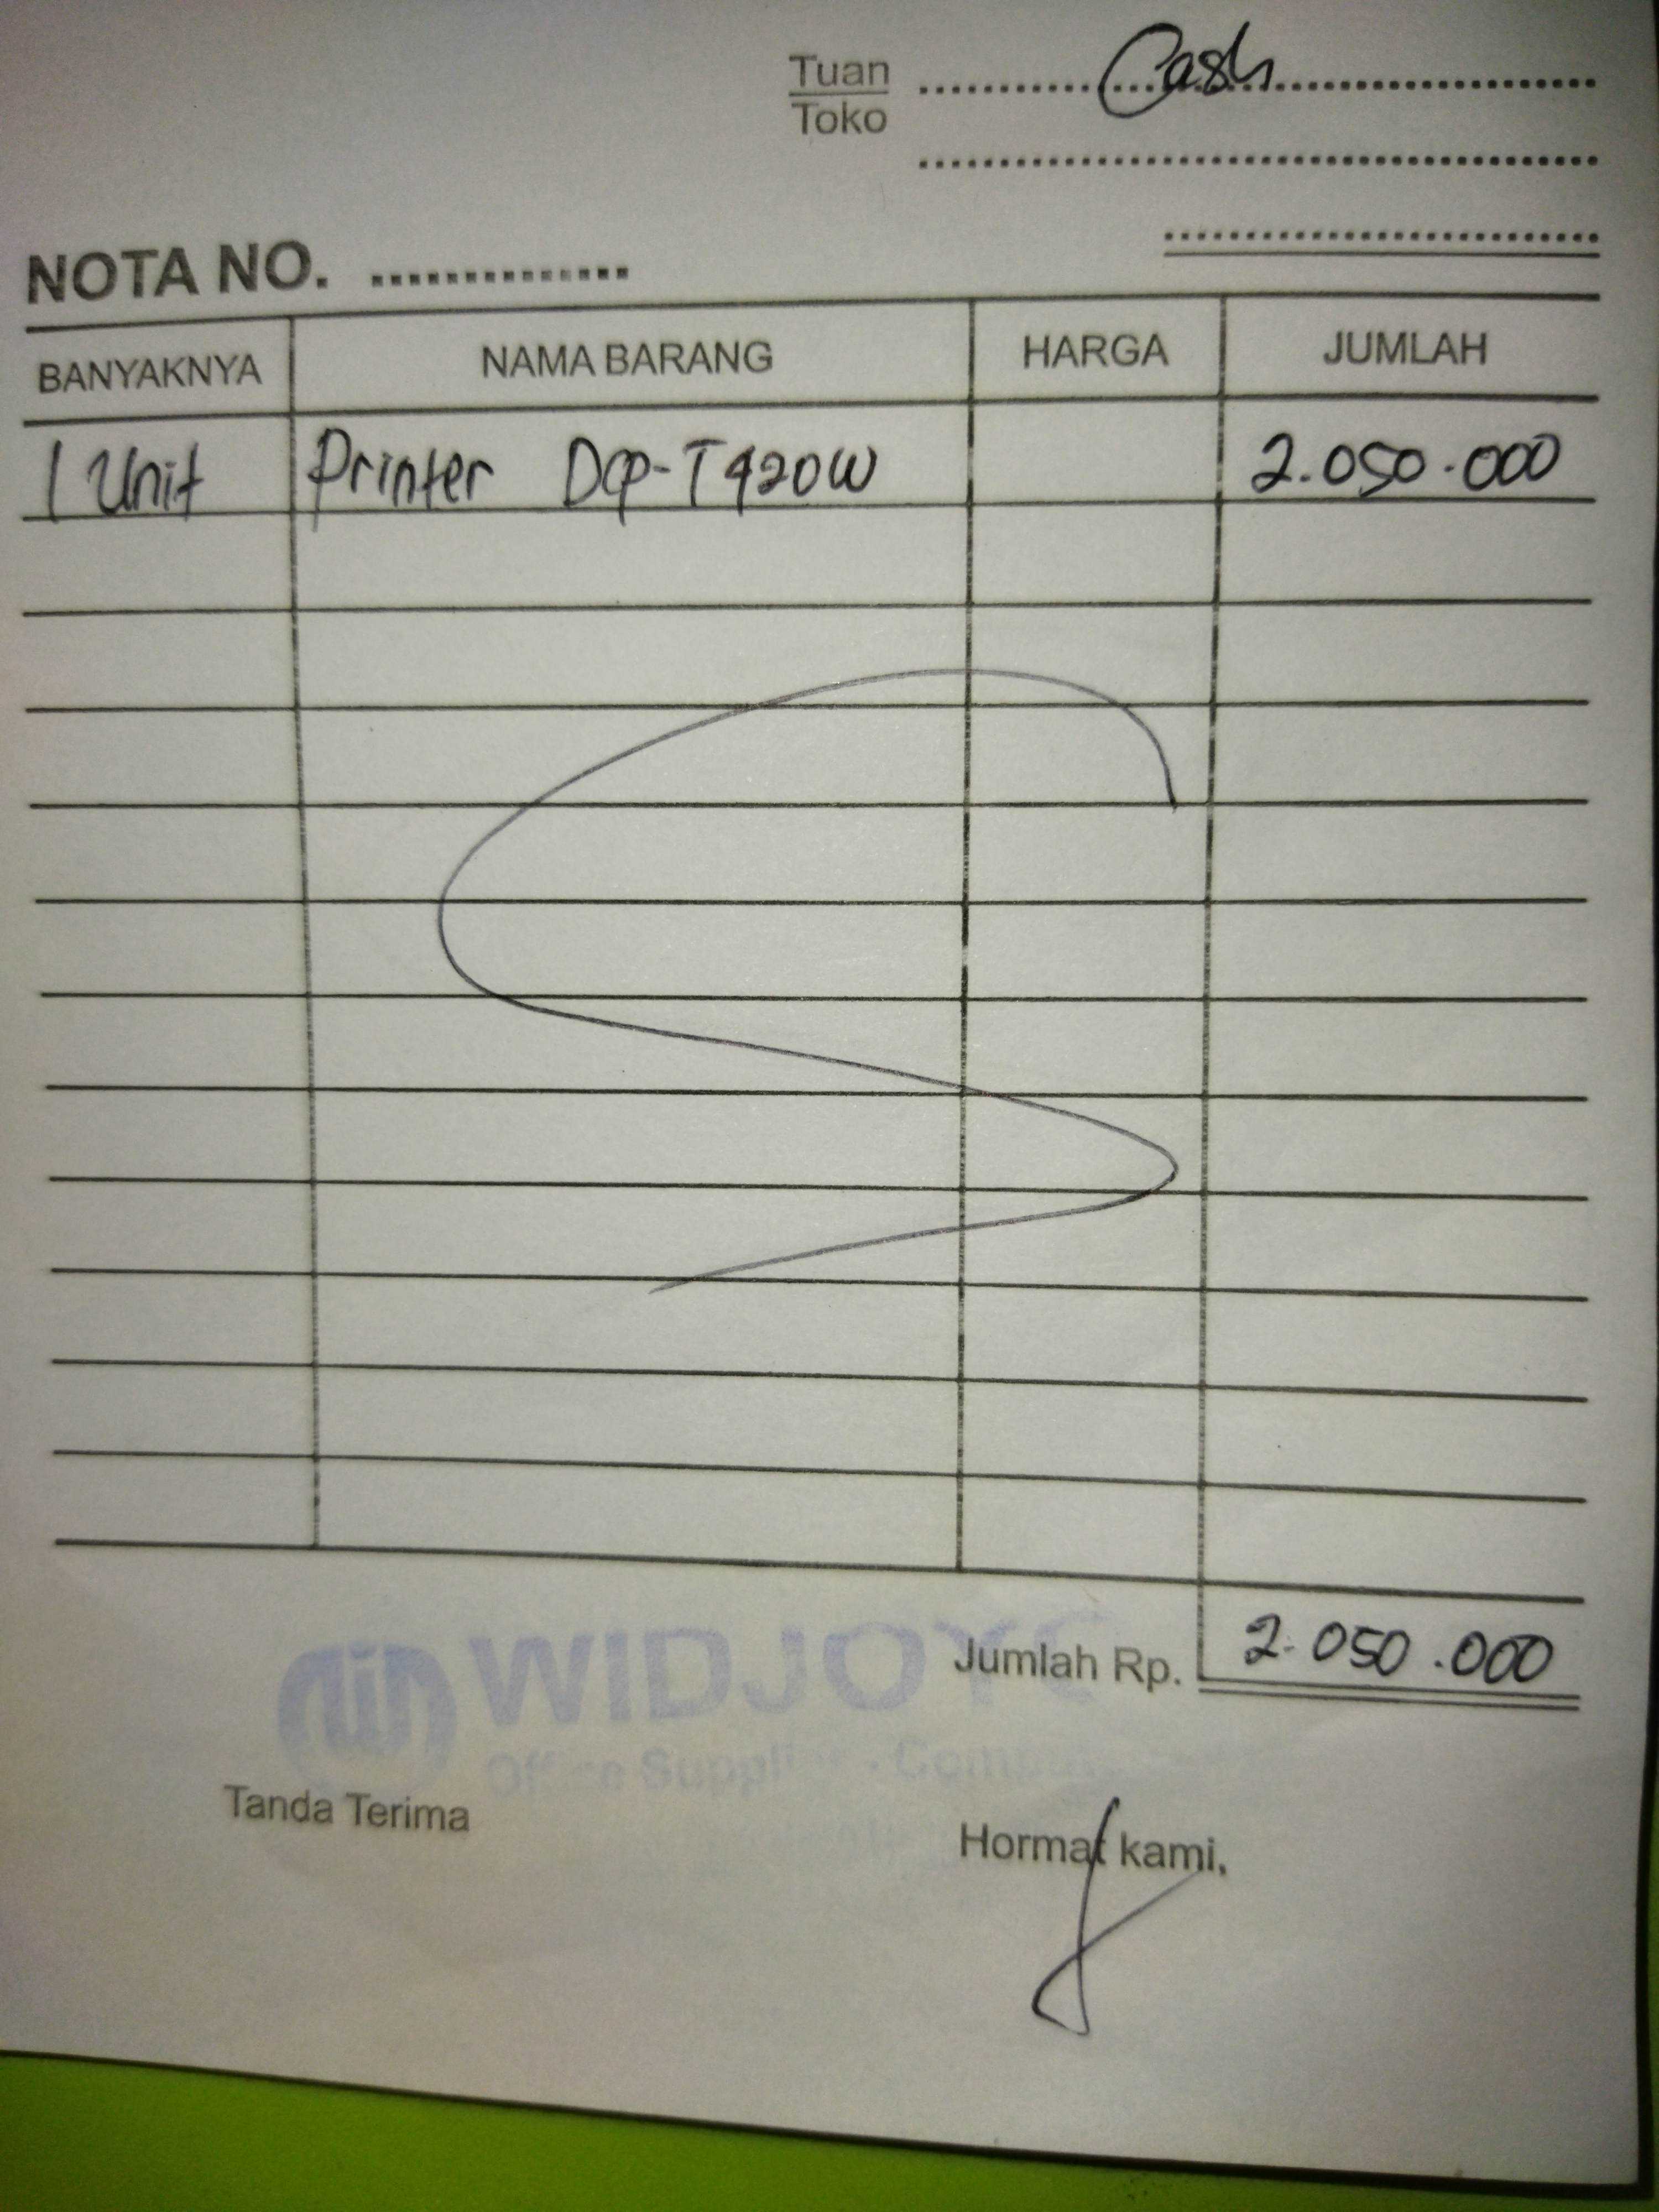 Tuan Cash
Toko
NOTA NO.
BANYAKNYA NAMA BARANG HARGA JUMLAH
1 Unit Printer DCP-T420W 2.050.000
Jumlah Rp. 2.050.000
WIDJOYO
Office Suppli
Tanda Terima
Hormat kami,